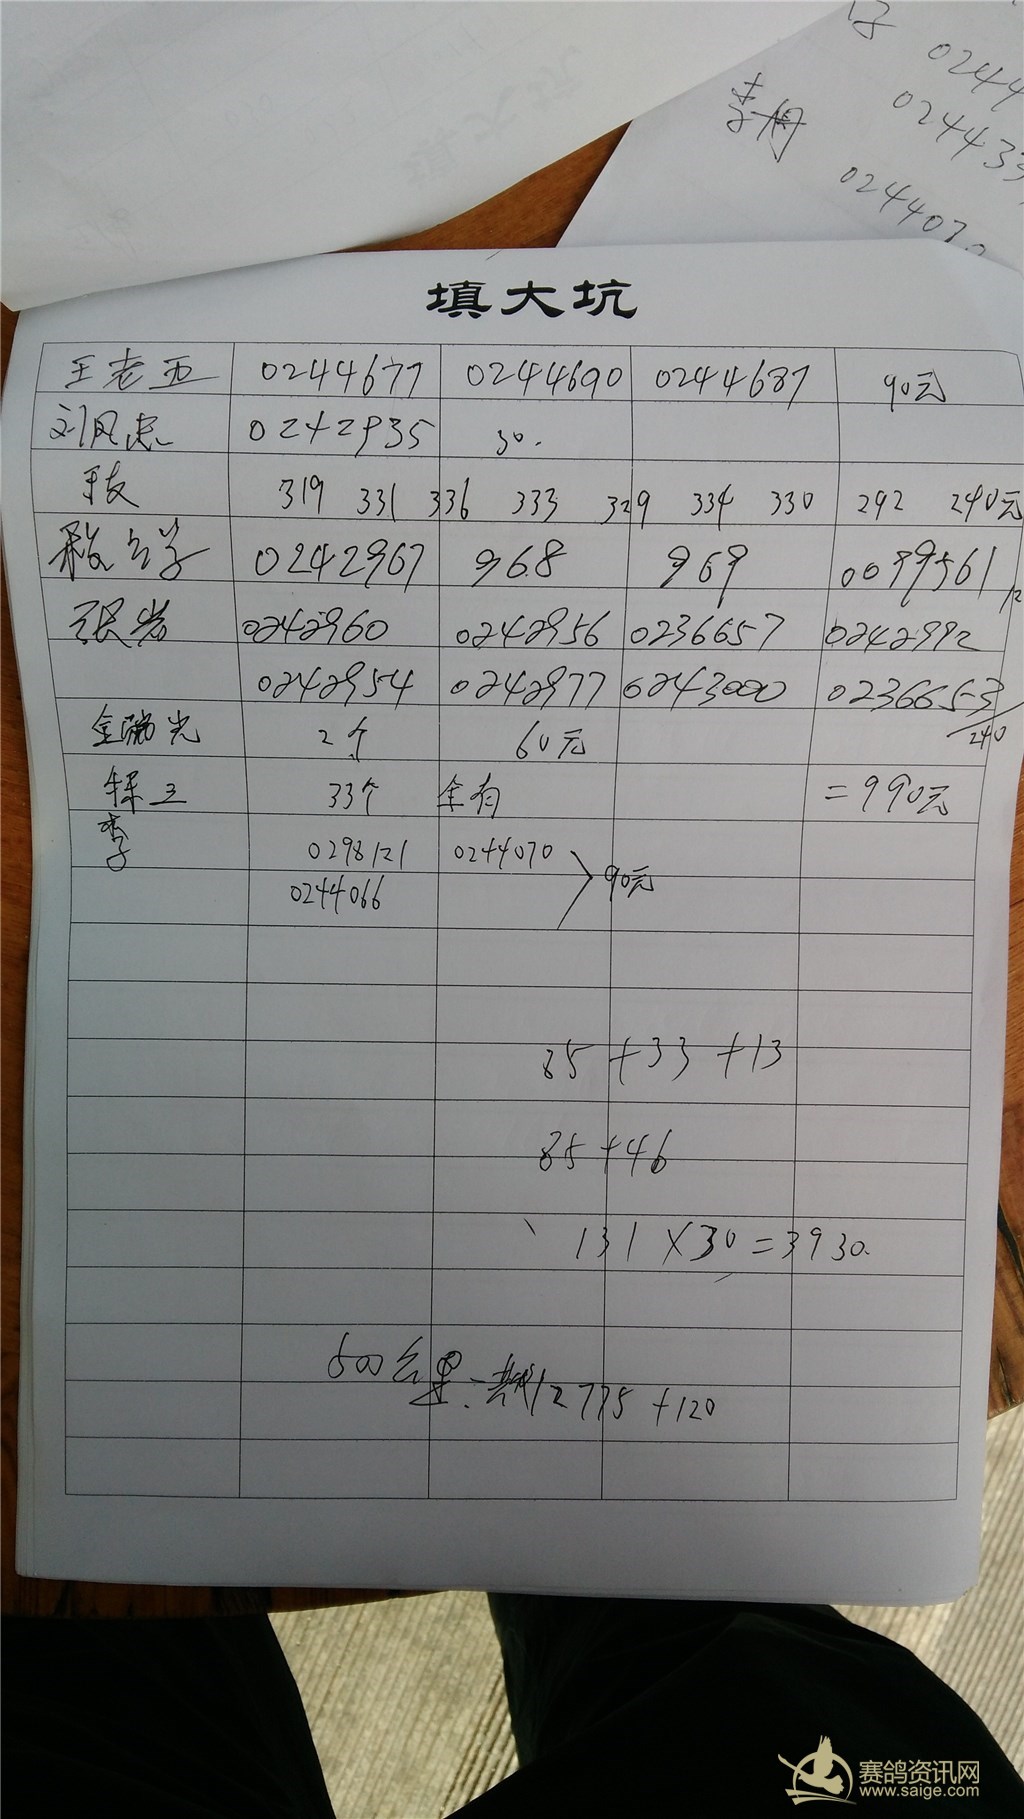 0244
024433
李
024407
填大坑
王老五 0244677 0244690 0244687 90元
刘风忠 0242935 30.
319 331 336 333 329 334 330 292 240元
0242967 968 969 0099561
张岩 0242960 0242956 0236657 0242992
0242954 0242977 0243000 0236653
240
金瑞光 2个 60元
33个 全有 =990元
李子 0298121 0244070
0244066 90元
85+33+13
85+46
131×30=3930.
500公里:共12775+120
赛鸽资讯网
www.saige.com